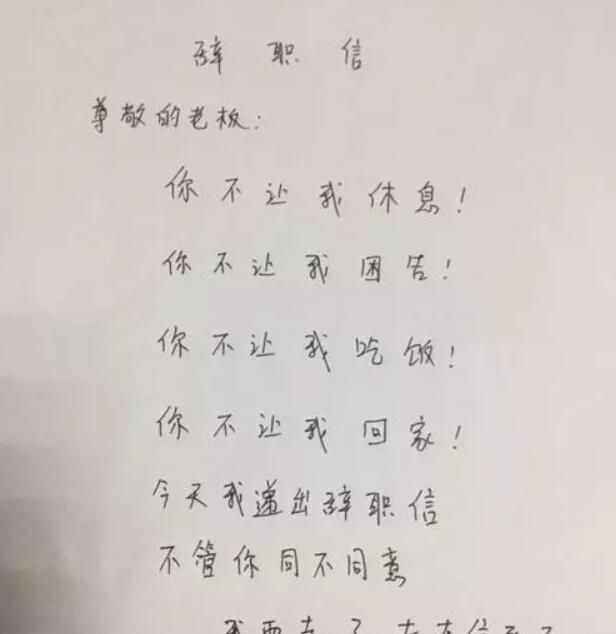 辞职信
尊敬的老板:
你不让我休息!
你不让我困告!
你不让我吃饭!
你不让我回家!
今天我递出辞职信
不管你同不同意